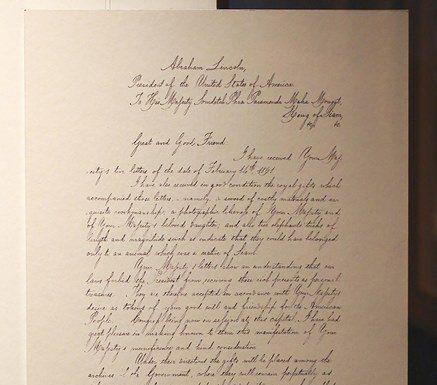 Abraham Lincoln,
President of the United States of America
To His Majesty Somdetch Phra Paramendr Maha Mongut,
King of Siam,
&c &c
Great and Good Friend:
I have received Your Maj
esty's two letters of the date of February 14th 1861.
I have also received in good condition the royal gifts which
accompanied those letters, namely, a sword of costly materials and ex
quisite workmanship; a photographic likeness of Your Majesty and
of Your Majesty's beloved daughter; and also two elephants' tusks of
length and magnitude such as indicate that they could have belonged
only to an animal which was a native of Siam.
Your Majesty's letters show an understanding that our
laws forbid the President from receiving these rich presents as personal
treasures. They are therefore accepted in accordance with Your Majesty's
desire as tokens of your good will and friendship for the American
People. Congress being now in session at this capital, I have had
great pleasure in making known to them this manifestation of Your
Majesty's munificence and kind consideration.
Under their directions the gifts will be placed among the
archives of the Government, where they will remain perpetually as